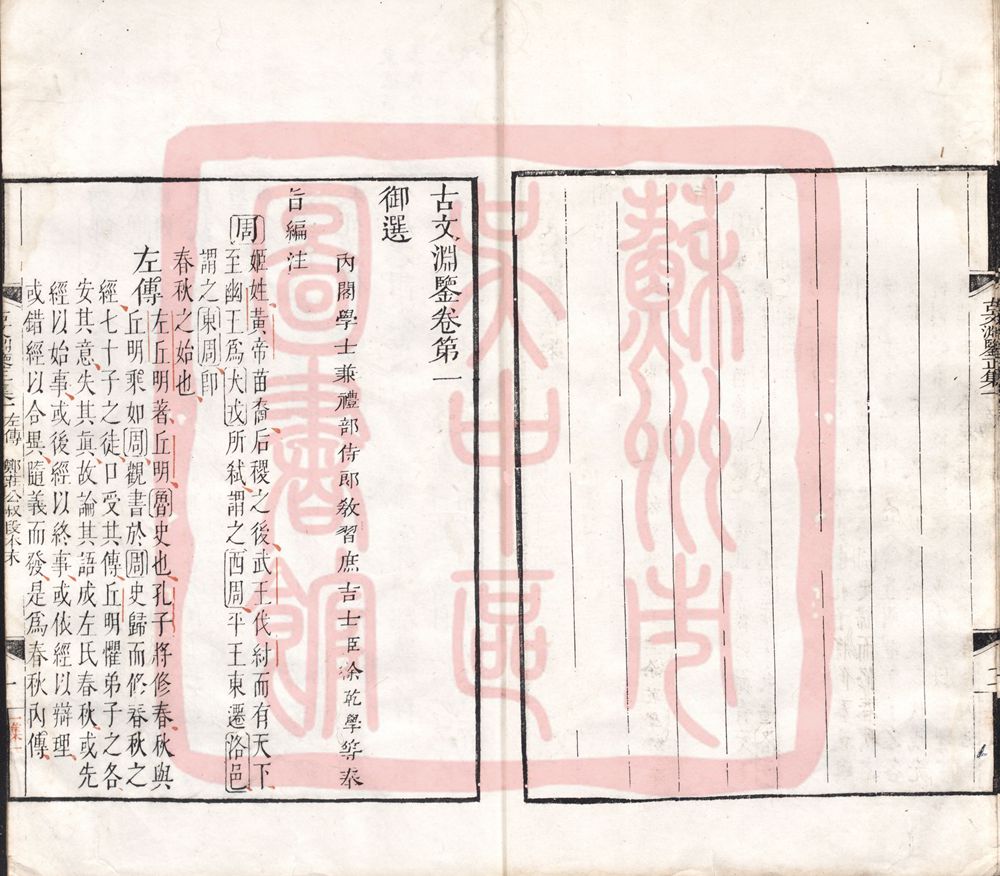 古文淵鑒正集一
古文淵鑒卷第一
御選
內閣學士兼禮部侍郎敎習庶吉士臣徐乾學等奉
旨編注
周
姬姓黃帝苗裔后稷之後武王伐紂而有天下
至幽王爲犬戎所弒謂之西周平王東遷洛邑
謂之東周卽
春秋之始也
左傳
左丘明著丘明魯史也孔子將修春秋與
丘明乘如周觀書於周史歸而修春秋之
經七十子之徒口受其傳丘明懼弟子之各
安其意失其眞故論其語成左氏春秋或先
經以始事或後經以終事或依經以辯理
或錯經以合異隨義而發是爲春秋內傳
左傳 鄭莊公叔段本末
一
蘇州市
吳中區
圖書館